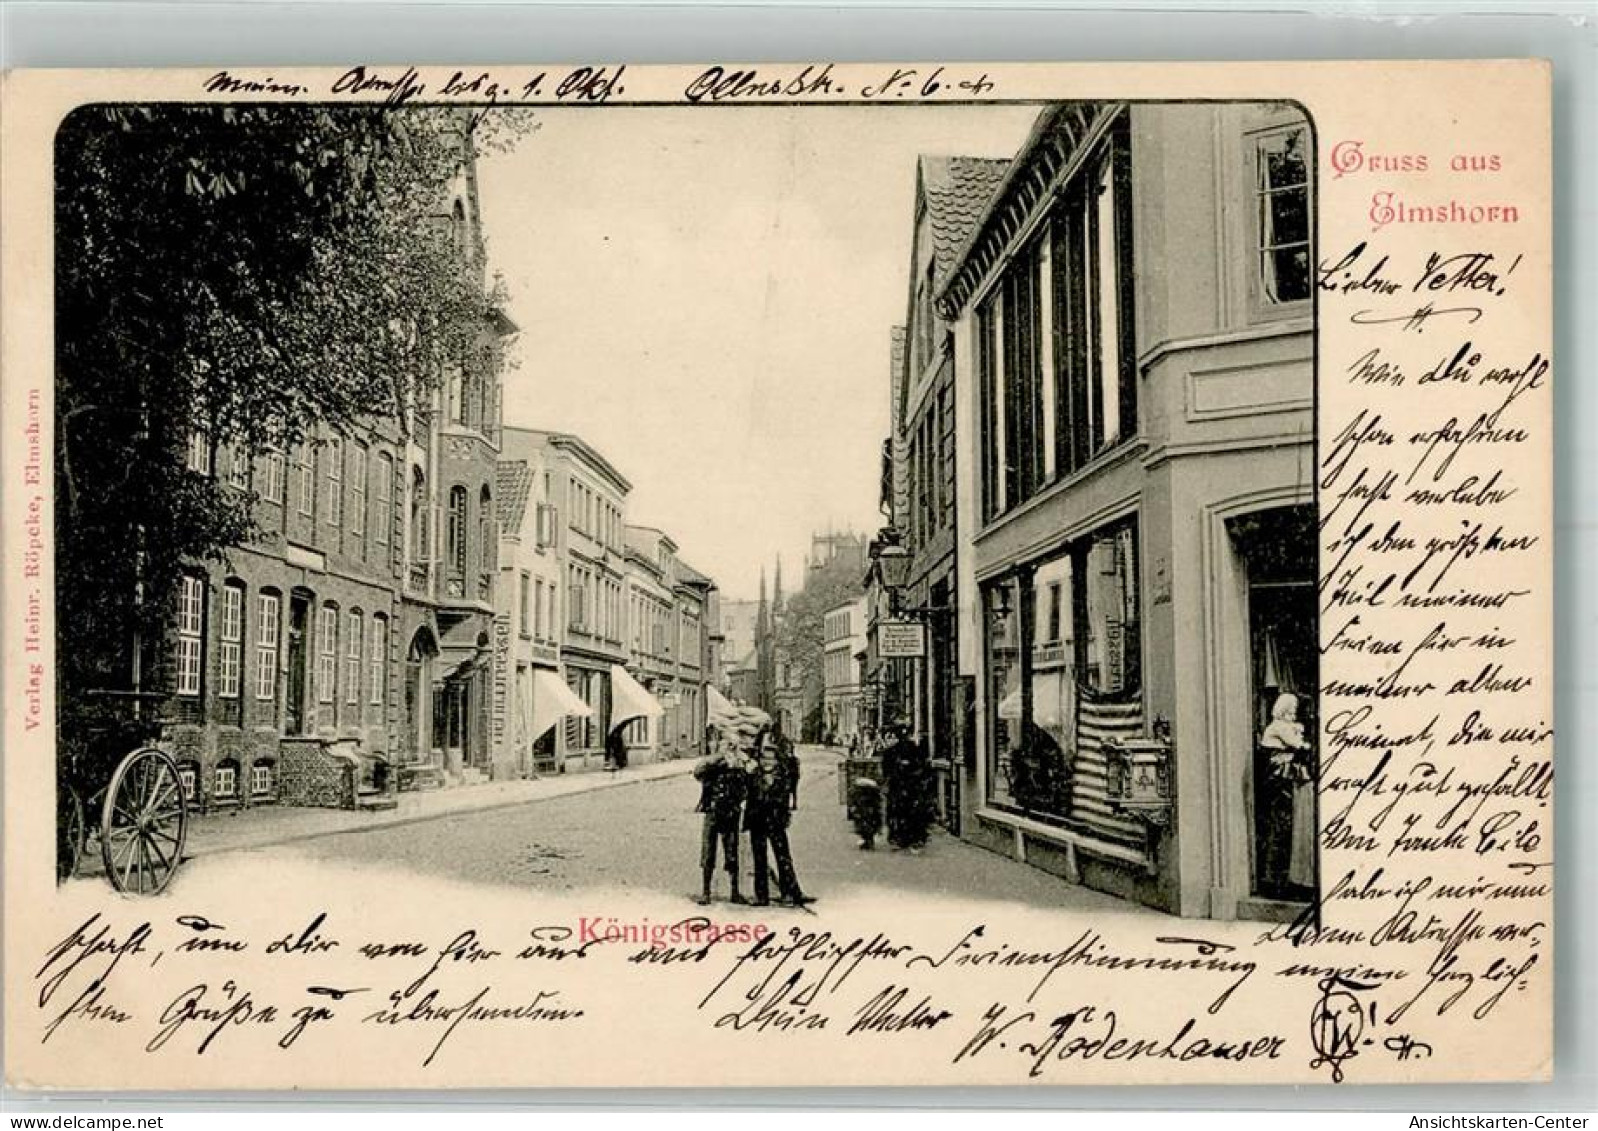 Meine Adresse bis z. 1. Okt. No 6.
Gruss aus
Elmshorn
Lieber Vetter!
Wie Du wohl
schon erfahren
hast verlebe
ich den größten
Teil meiner
Ferien hier in
meiner alten
Heimat, die mir
recht gut gefällt.
Von Tante
habe ich mir nun
Deine Adresse ver-
schafft, um Dir von hier aus aus fröhlichster Ferienstimmung meine herzlich-
sten Grüße zu übersenden.
Dein Vetter W. Rödenhauser
Königstrasse
Verlag Heinr. Röpcke, Elmshorn
Ansichtskarten-Center